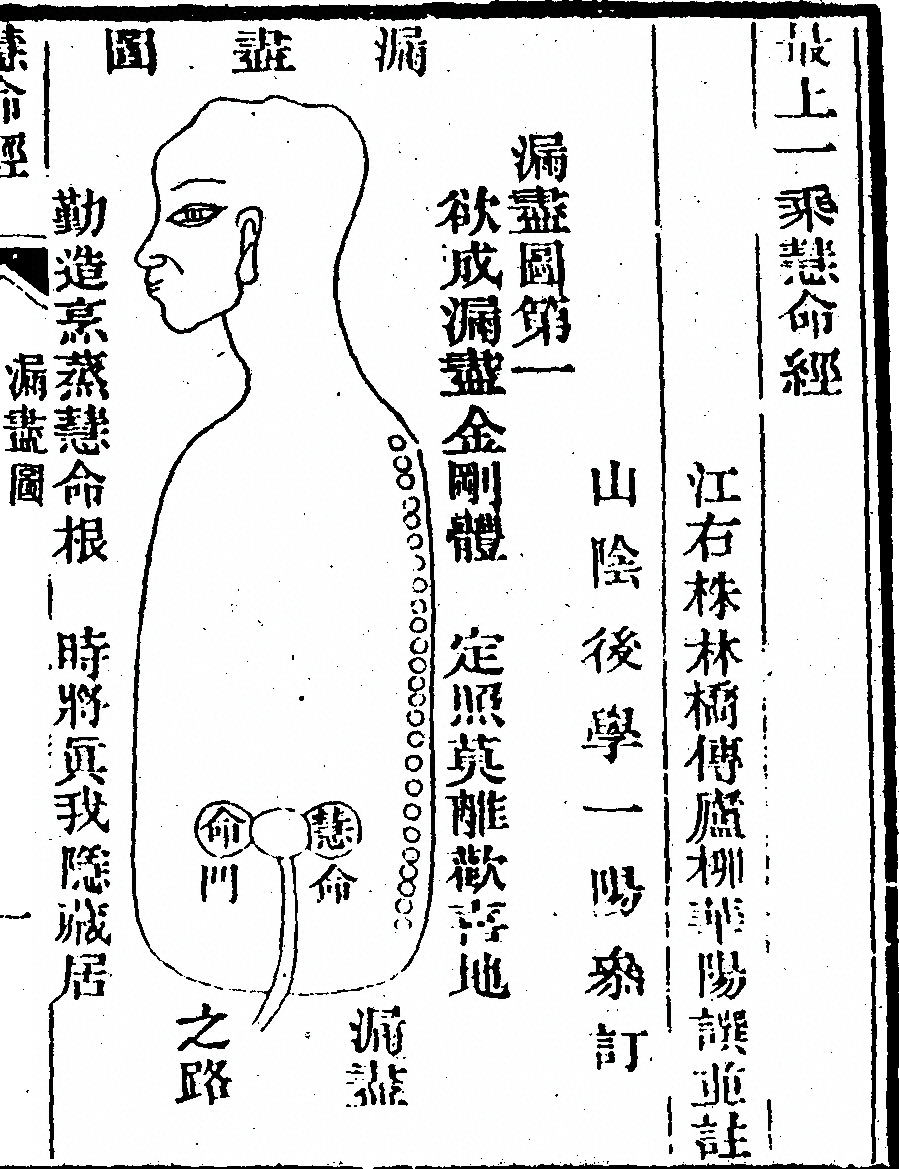 最上一乘慧命經
江右株林橋傳廬柳華陽譔並註
山陰後學一陽叅訂
漏盡圖第一
欲成漏盡金剛體
定照莫離歡喜地
漏盡圖
慧命
命門
漏盡
之路
勤造烹蒸慧命根
時將眞我隱藏居
慧命經
漏盡圖
一